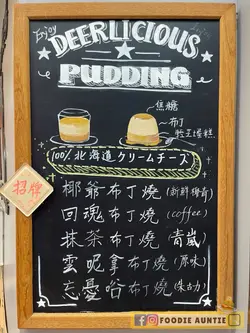 Enjoy
DEERLICIOUS
PUDDING
焦糖
布丁
芝士蛋糕
100% 北海道クリームチーズ
招牌
椰爺布丁燒 (新鮮椰青)
回魂布丁燒 (coffee)
抹茶布丁燒 (青嵐)
雲呢拿布丁燒 (原味)
忘憂咕布丁燒 (朱古力)
FOODIE AUNTIE